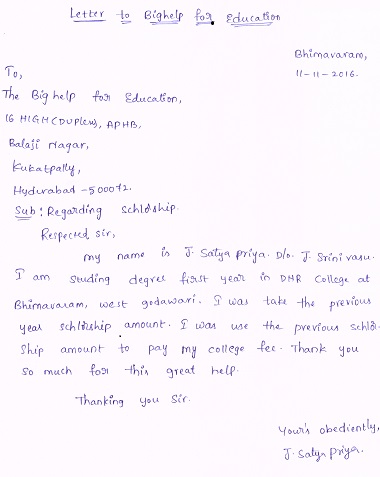 Letter to Bighelp for Education
Bhimavaram,
11-11-2016.
To,
The Big help for Education,
16 HIGH(Duplex), APHB,
Balaji Nagar,
Kukatpally,
Hyderabad - 500072.
Sub: Regarding schlorship.
Respected sir,
my name is J. Satya priya. D/o. J. Srinivasu.
I am studing degree first year in DNR College at
Bhimavaram, west godawari. I was take the previous
year schlorship amount. I was use the previous schlor-
ship amount to pay my college fee. Thank you
so much for this great help.
Thanking you Sir.
Your's obediently,
J. Satya priya.